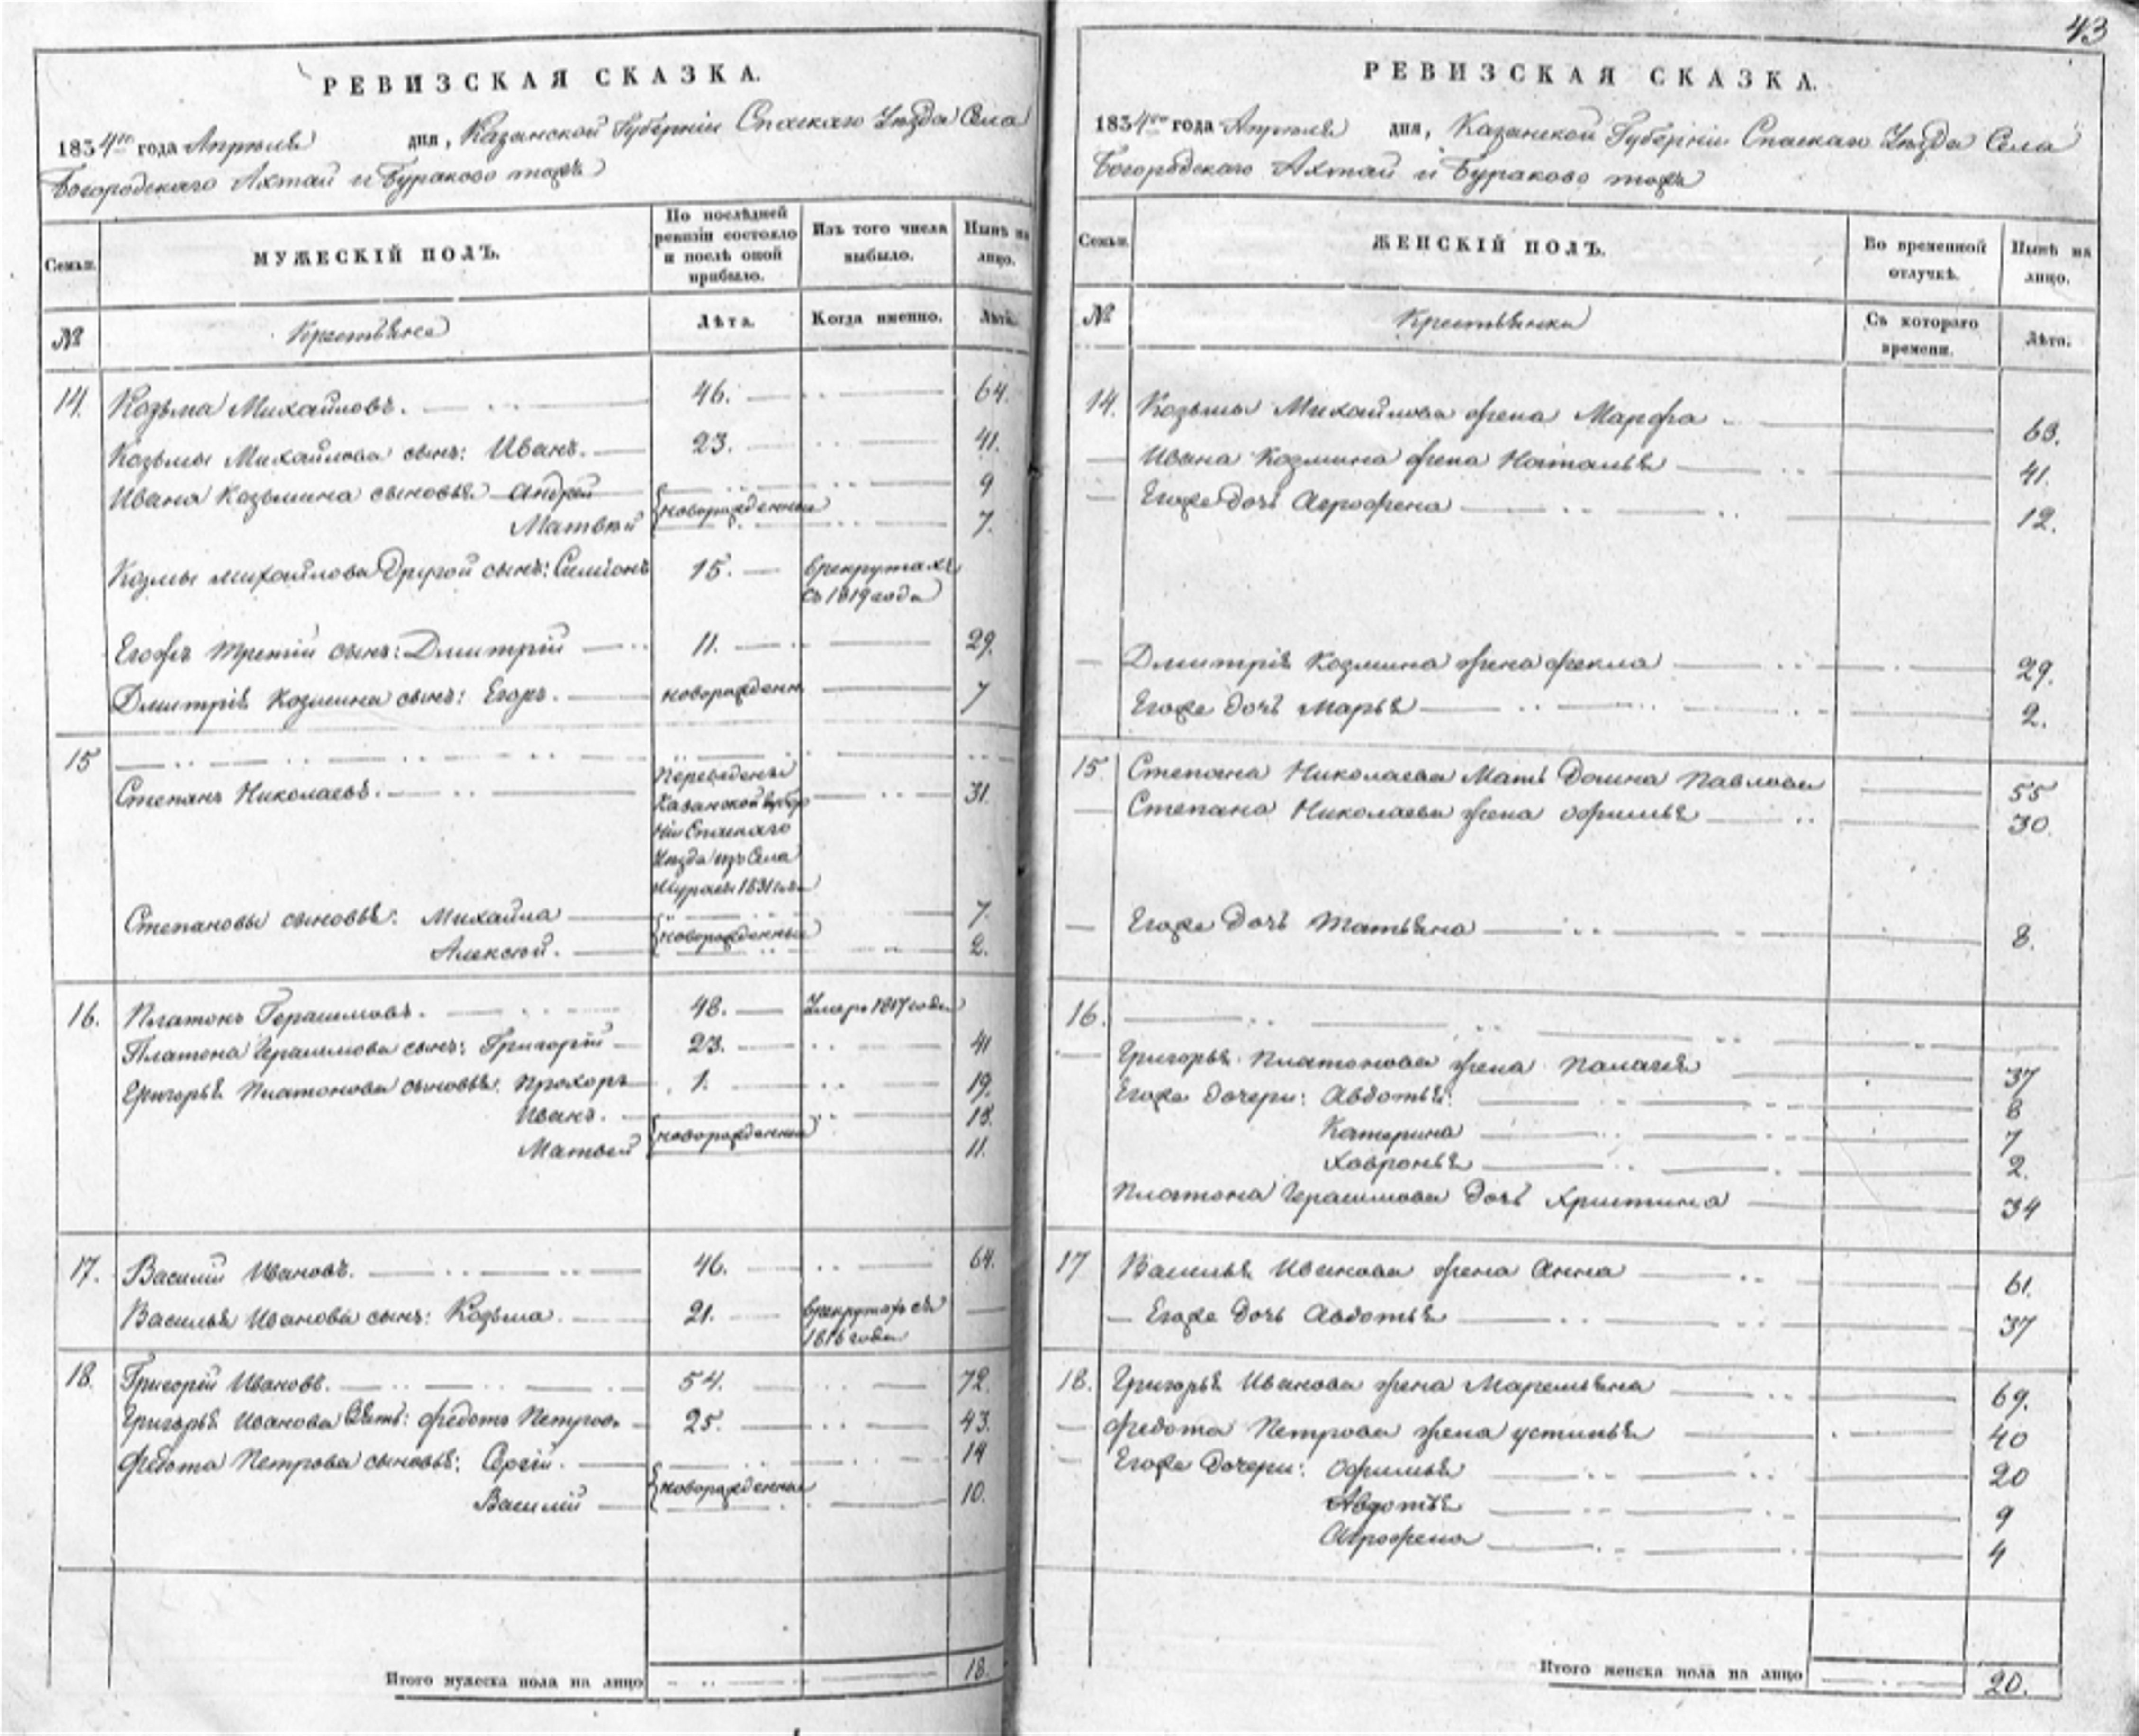 РЕВИЗСКАЯ СКАЗКА.
1834го года Апреля дня, Казанской Губерніи Спаскаго Уезда Села
Богородскаго Ахтай и Бураково тожъ
Семьи.
МУЖЕСКІЙ ПОЛЪ.
По послѣдней ревизіи состояло и послѣ оной прибыло.
Изъ того числа выбыло.
Нынѣ на лицо.
№
Крестьяне
Лѣта.
Когда именно.
Лѣта.
14. Козьма Михайловъ. 46. 64.
Козьмы Михайлова сынъ: Иванъ. 23. 41.
Ивана Козьмина сыновья Андрей 9
новорожденные
Матвѣй 7.
Козмы михайлова Другой сынъ: Симіонъ 15. врекрутахъ
съ 1819 года
Егожъ третій сынъ: Дмитрій 11. 29.
Дмитрія Козмина сынъ: Егоръ. новорожденн 7
15
Степанъ Николаевъ. Переведены 31.
Казанской Губер
ніи Спаскаго
Уезда изъ Села
1831
Степановы сыновья: Михайла 7.
новорожденные
Алексей. 2.
16. Платонъ Герасимовъ. 48. Умеръ 1817 года
Платона Герасимова сынъ: Григорій 23. 41
Григорья Платонова сыновья: Прохоръ 1. 19.
Иванъ. 13.
новорожденные
Матвей 11.
17. Василій Ивановъ. 46. 64.
Василья Иванова сынъ: Козьма. 21. врекрутахъ съ
1816 года
18. Григорій Ивановъ. 54. 72.
Григорья Иванова Зять: Федотъ Петровъ 25. 43.
Федота Петрова сыновья: Сергій. 14
новорожденные
Василій 10.
Итого мужеска пола на лицо 18.
43
РЕВИЗСКАЯ СКАЗКА.
1834го года Апреля дня, Казанской Губерніи Спаскаго Уезда Села
Богородскаго Ахтай и Бураково тожъ
Семьи.
ЖЕНСКІЙ ПОЛЪ.
Во временной отлучкѣ.
Нынѣ на лицо.
№
Крестьянки
Съ котораго времени.
Лѣта.
14. Козьмы Михайлова жена Марфа 63.
Ивана Козмина жена Наталья 41.
Егоже дочь Агрофена 12.
Дмитрія Козмина жена Фекла 29.
Егоже дочь Марья 2.
15. Степана Николаева Мать Домна Павлова 55
Степана Николаева жена Офимья 30.
Егоже Дочь Татьяна 8.
16.
Григорья Платонова жена Палагея 37
Егоже дочери: Авдотья 8
Катерина 7
Хавронья 2.
Платона Герасимова Дочь Христина 34
17 Василья Иванова жена Анна 61.
Егоже Дочь Авдотья 37
18. Григорья Иванова жена Маремьяна 69.
Федота Петрова жена устинья 40
Егоже Дочери: Офимья 20
Авдотья 9
Агрофена 4
Итого женска пола на лицо 20.